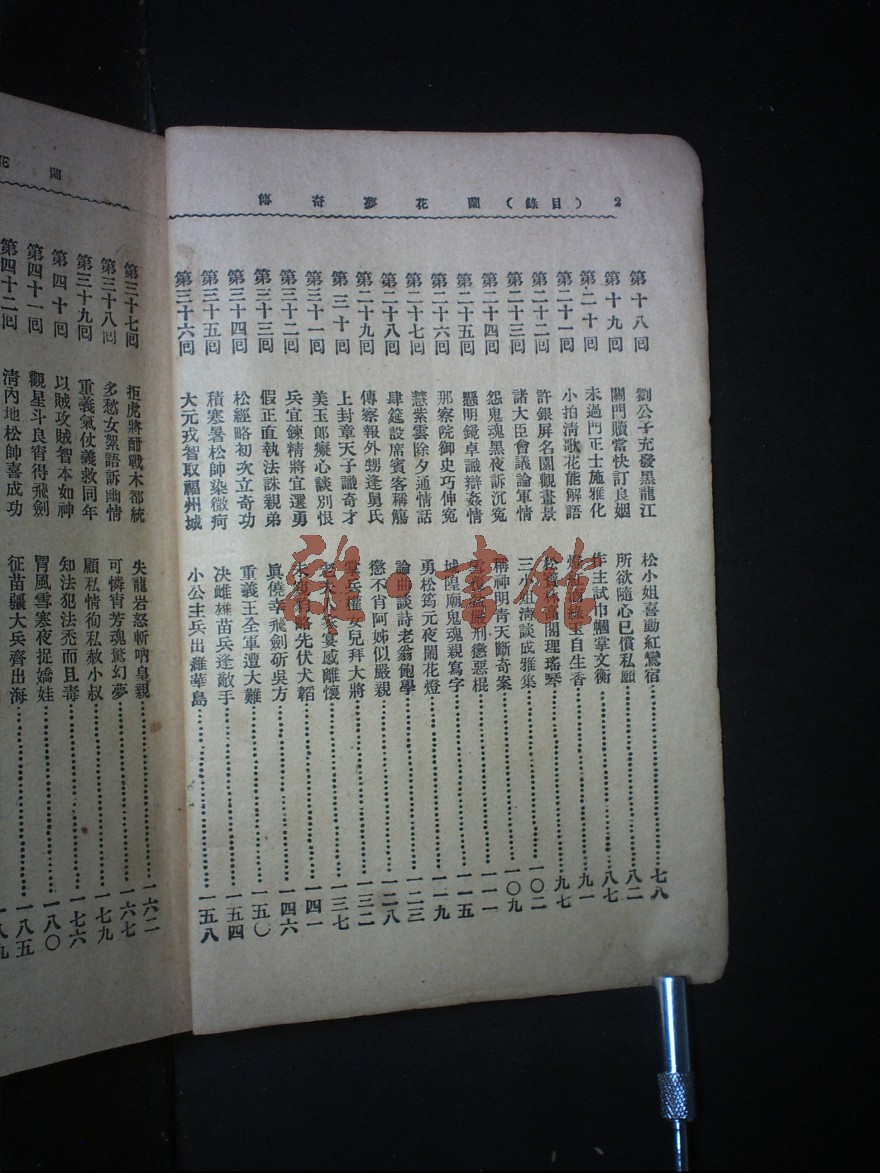 2 (目錄) 蘭花夢奇傳
第十八囘 劉公子充發黑龍江 松小姐喜動紅鸞宿 七八
第十九囘 關門贖當快訂良姻 所欲隨心已償私願 八二
第二十囘 未過門正士施雅化 作主試巾幗掌文衡 八七
第二十一囘 小拍清歌花能解語 玉自生香 九一
第二十二囘 許銀屏名園觀畫景 松寶 閣理瑤琴 九七
第二十三囘 諸大臣會議論軍情 三小姐清談成雅集 一〇二
第二十四囘 怨鬼魂黑夜訴沉寃 稱神明青天斷奇案 一〇九
第二十五囘 懸明鏡卓識辯姦情 嚴刑懲惡棍 一一一
第二十六囘 那察院御史巧伸寃 城隍廟鬼魂親寫字 一一五
第二十七囘 慧紫雲除夕通情話 勇松筠元夜鬧花燈 一一九
第二十八囘 肆筵設席賓客稱觴 論曲談詩老翁飽學 一二三
第二十九囘 傳察報外甥逢舅氏 懲不肖阿姊似嚴親 一二八
第三十囘 上封章天子識奇才 掌兵權女兒拜大將 一三二
第三十一囘 美玉郎癡心談別恨 老夫人家宴感離懷 一三七
第三十二囘 兵宜鍊精將宜選勇 略先伏犬韜 一四一
第三十三囘 假正直執法誅親弟 眞僥幸飛劍斫吳方 一四六
第三十四囘 松經略初次立奇功 重義王全軍遭大難 一五〇
第三十五囘 積寒暑松帥染微疴 决雌雄苗兵逢敵手 一五四
第三十六囘 大元戎智取福州城 小公主兵出 華島 一五八
蘭花
第三十七囘 拒虎將酣戰木都統 失龍岩怒斬吶皇親 一六二
第三十八囘 多愁女絮語訴幽情 可憐宵芳魂驚幻夢 一六七
第三十九囘 重義氣仗義救同年 顧私情徇私赦小叔 一七九
第四十囘 以賊攻賊智本如神 知法犯法禿而且毒 一七六
第四十一囘 觀星斗良宵得飛劍 冒風雪寒夜捉嬌娃 一八〇
第四十二囘 清內地松帥喜成功 征苗疆大兵齊出海 一八五
一八九